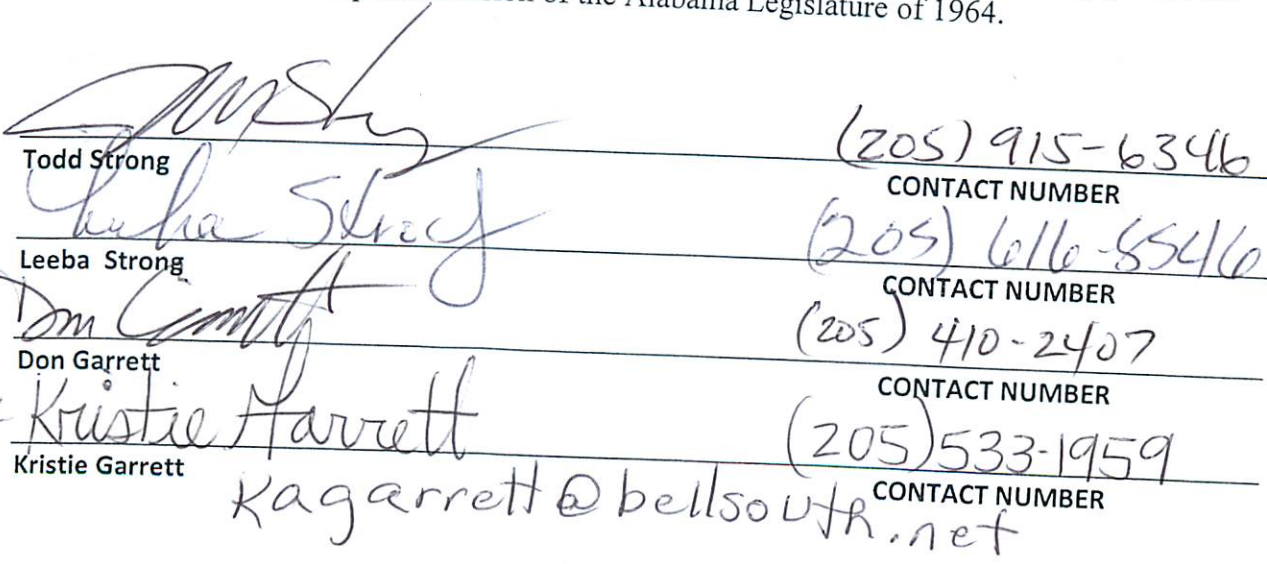 of the Alabama Legislature of 1964.
(205) 915-6346
Todd Strong
CONTACT NUMBER
Strong (205) 616-5546
Leeba Strong
CONTACT NUMBER
Don Garrett (205) 410-2407
Don Garrett
CONTACT NUMBER
Kristie Garrett (205) 533-1959
Kristie Garrett
CONTACT NUMBER
kagarrett@bellsouth.net